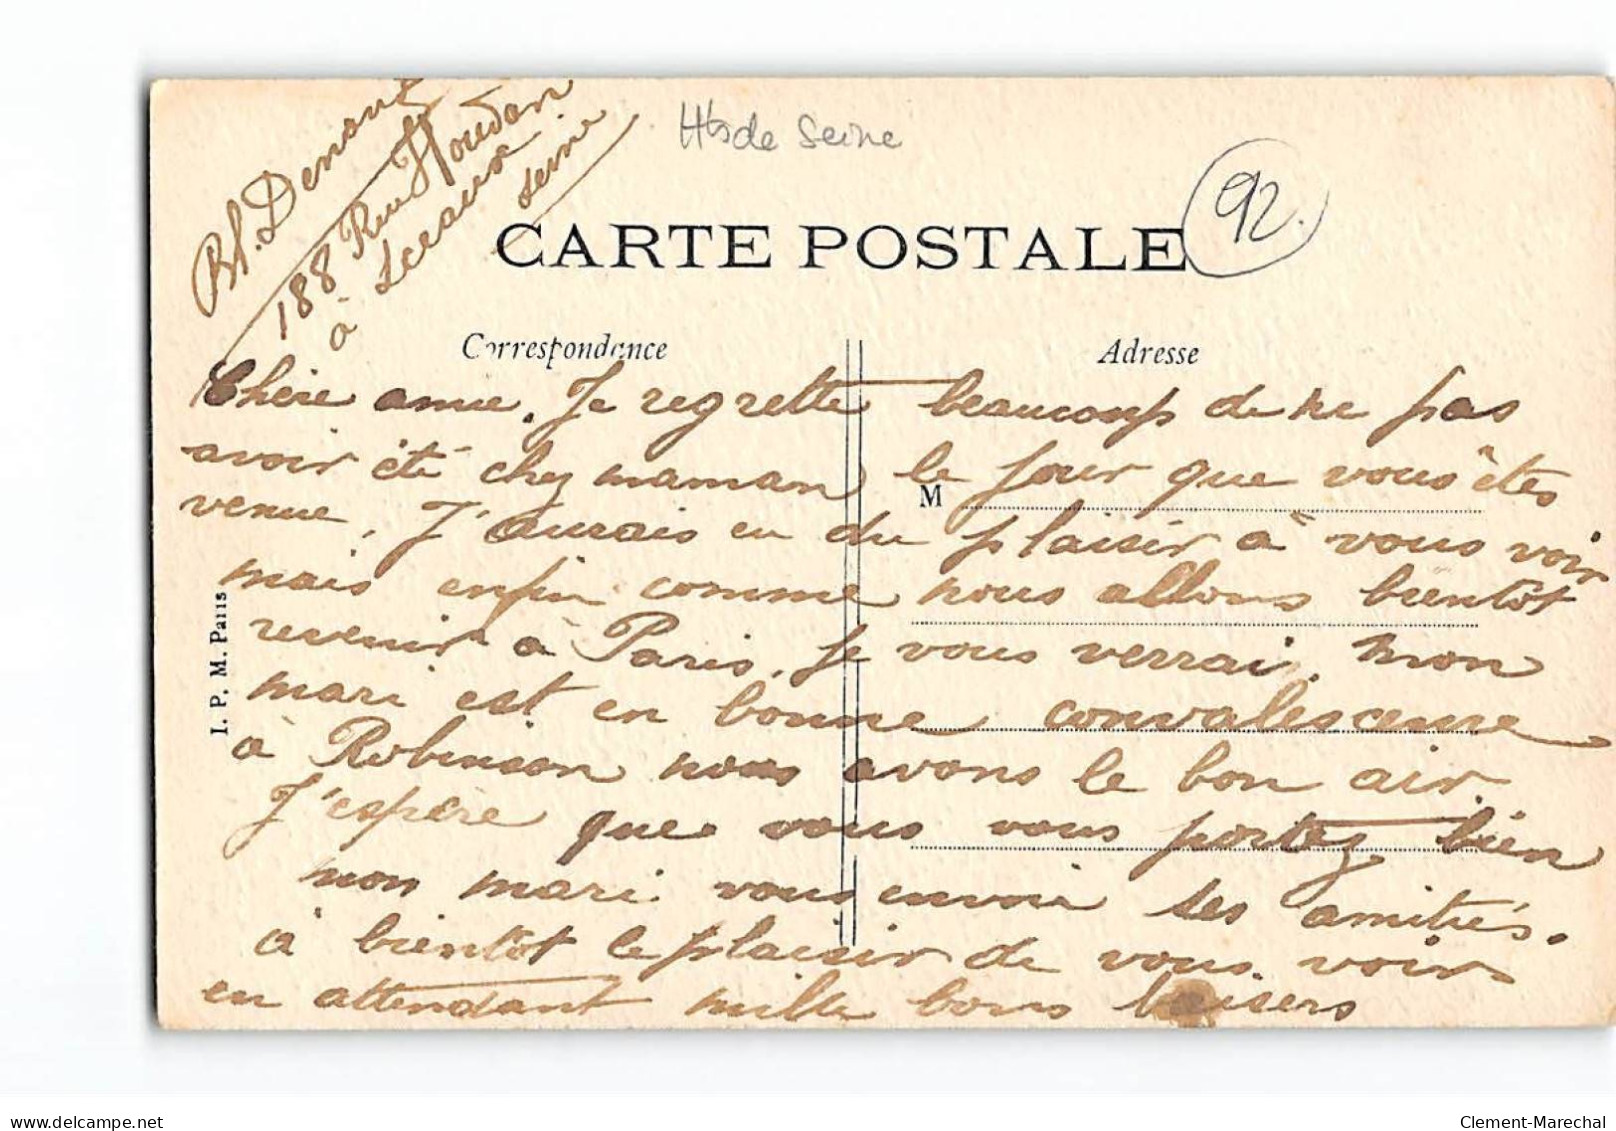 Hts de Seine
92.
188 Rue Houdan
à Sceaux
seine
CARTE POSTALE
Correspondance
Adresse
M
I. P. M. Paris
Chère amie. Je regrette beaucoup de ne pas
avoir été chez maman le jour que vous êtes
venue, J'aurais eu du plaisir à vous voir
mais enfin comme nous allons bientôt
revenir à Paris, je vous verrai, mon
mari est en bonne convalescence
à Robinson nous avons le bon air
J'espère que vous vous portez bien
mon mari vous envoie ses amitiés.
à bientôt le plaisir de vous voir
en attendant mille bons baisers
delcampe.net
Clement-Marechal